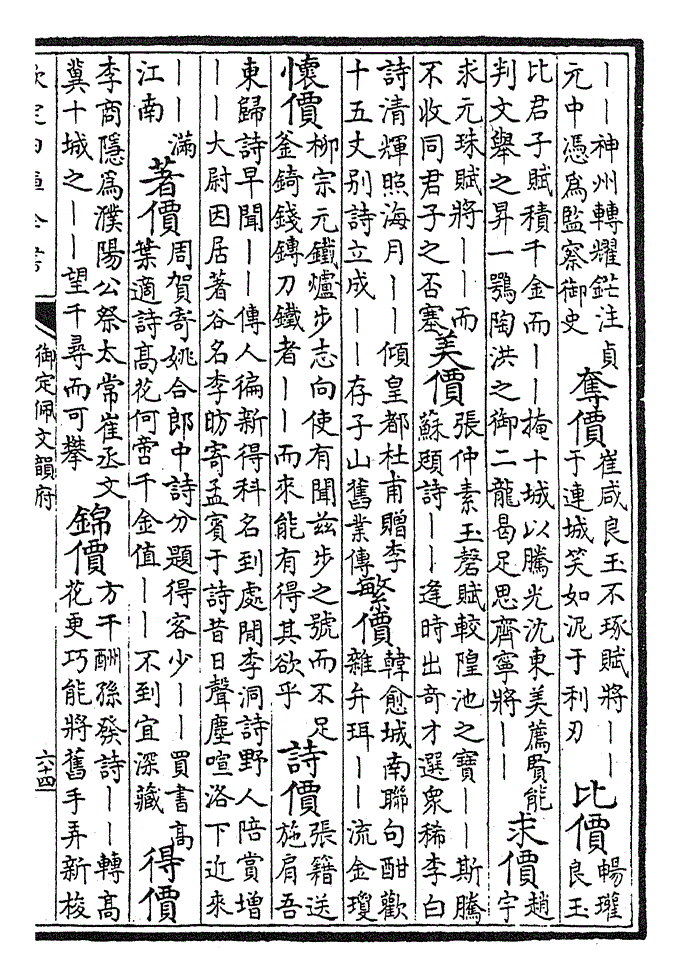 ——神州轉耀鋩注貞
元中憑爲監察御史
奪價
崔咸良玉不琢賦將——
于連城笑如泥于利刃
比價
暢璀
良玉
比君子賦積千金而——掩十城以騰光沈東美薦賢能
判文舉之昇一鶚陶洪之御二龍曷足思齊寧將——
求價
趙
宇
求元珠賦將——而
不收同君子之否塞
美價
張仲素玉磬賦較隍池之寶——斯騰
蘇頲詩——逢時出奇才選衆稀李白
詩清輝照海月——傾皇都杜甫贈李
十五丈别詩立成——存子山舊業傳
繁價
韓愈城南聯句酣歡
雜弁珥——流金瓊
懷價
柳宗元鐵爐步志向使有聞兹步之號而不足
釜錡錢鎛刀鐵者——而來能有得其欲乎
詩價
張籍送
施肩吾
東歸詩早聞——傳人徧新得科名到處閒李洞詩野人陪賞增
——大尉因居著谷名李昉寄孟賓于詩昔日聲塵喧洛下近來
——滿
江南
著價
周賀寄姚合郎中詩分題得客少——買書高
葉適詩高花何啻千金值——不到宜深藏
得價
李商隱爲濮陽公祭太常崔丞文
冀十城之——望千尋而可攀
錦價
方干酬孫發詩——轉高
花更巧能將舊手弄新梭
御定佩文韻府
六十四